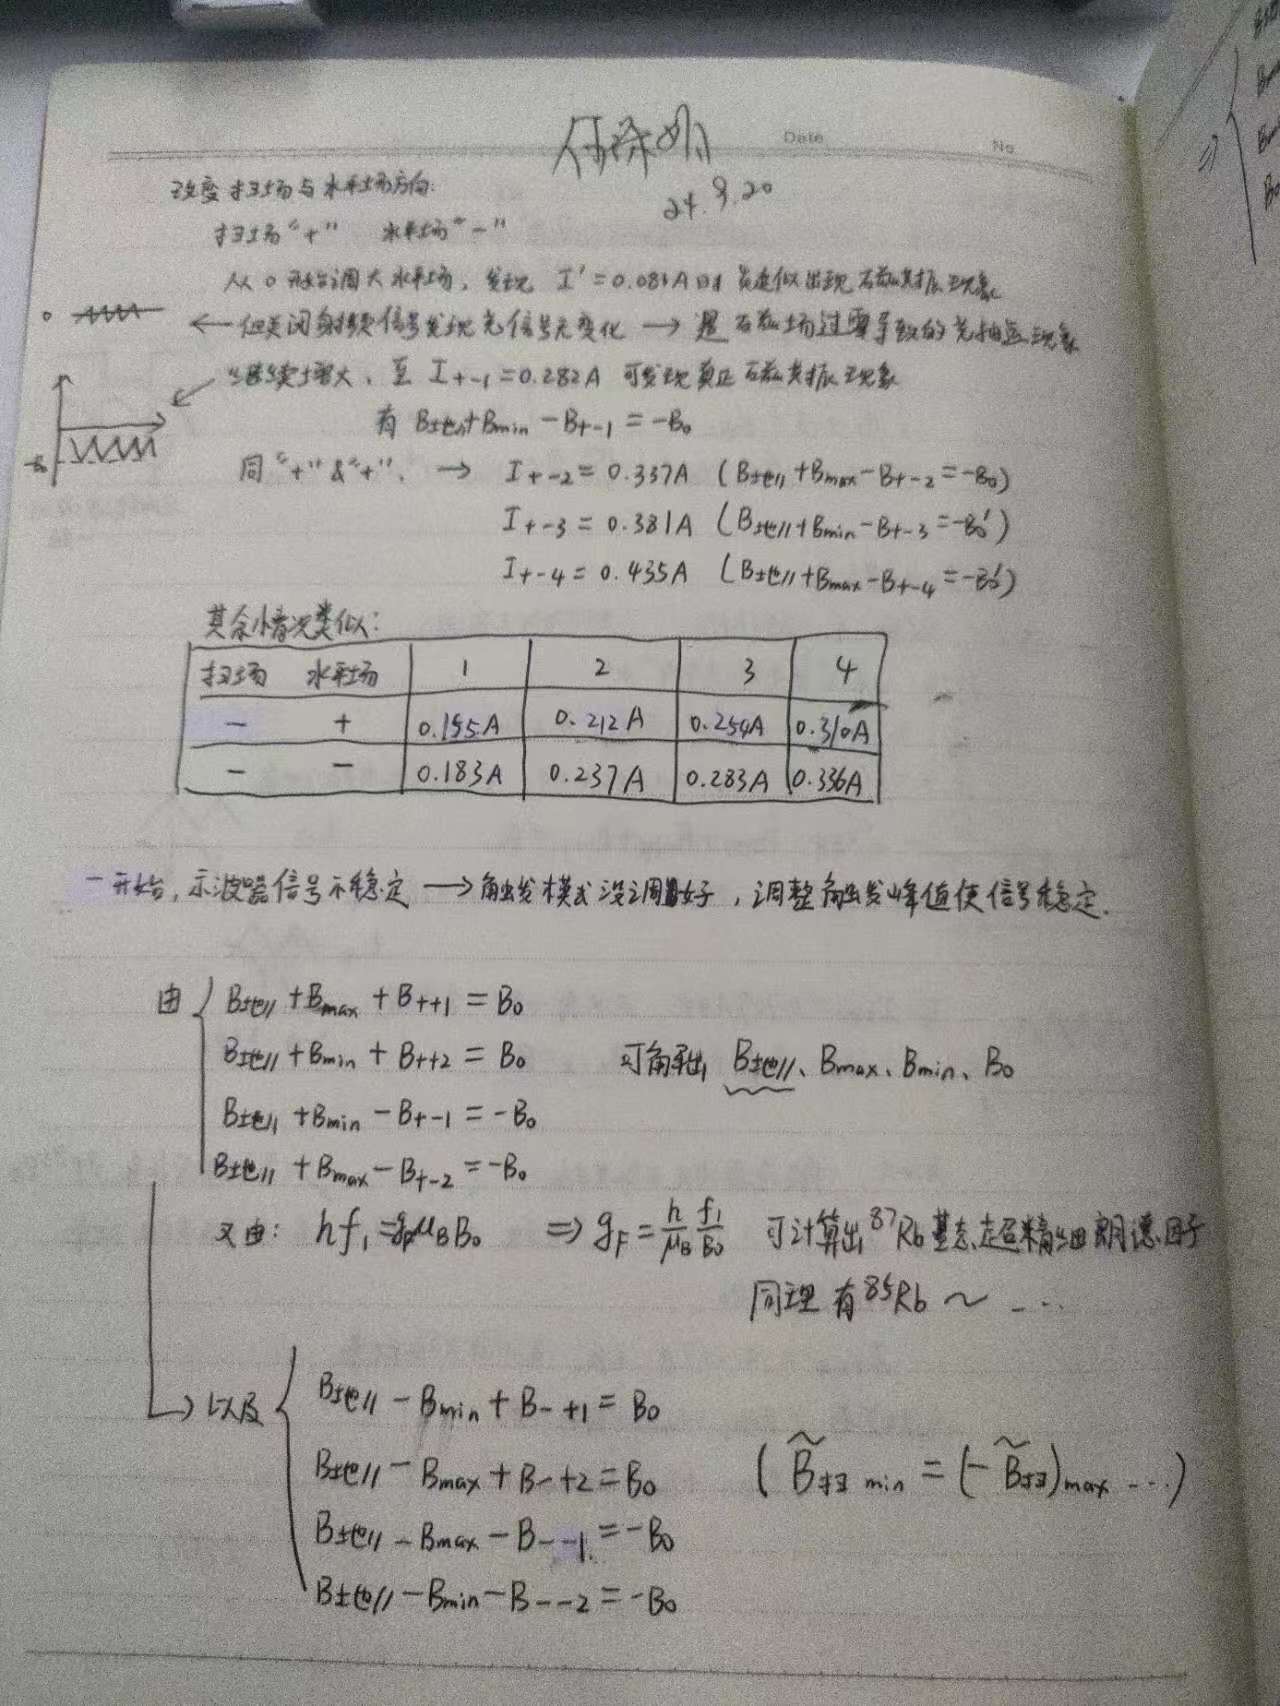 Date No
24.9.20
改变扫场与水平场方向:
扫场“+” 水平场“-”
从0开始调大水平场,发现 I'=0.081A时 类似出现磁共振现象
0 ← 但关闭射频信号发现光信号无变化 → 是磁场过零导致的光抽运现象
继续增大,至 I+-1=0.282A 可发现真正磁共振现象
有 B地∥+Bmin-B+-1=-B0
-B0
同“+”&“+”. → I+-2=0.337A (B地∥+Bmax-B+-2=-B0)
I+-3=0.381A (B地∥+Bmin-B+-3=-B0')
I+-4=0.435A (B地∥+Bmax-B+-4=-B0')
其余情况类似:
扫场 水平场 1 2 3 4
- + 0.155A 0.212A 0.254A 0.310A
- - 0.183A 0.237A 0.283A 0.336A
一开始,示波器信号不稳定 → 触发模式没调好,调整触发峰值使信号稳定.
由 { B地∥+Bmax+B++1=B0
B地∥+Bmin+B++2=B0 可解出 B地∥、Bmax、Bmin、B0
B地∥+Bmin-B+-1=-B0
B地∥+Bmax-B+-2=-B0
又由: hf1=gFμBB0 ⇒ gF=h/μB f1/B0 可计算出87Rb基态超精细朗德因子
同理有85Rb ~ ...
→ 以及 { B地∥-Bmin+B-+1=B0
B地∥-Bmax+B-+2=B0 (B̃扫 min=(-B̃扫)max ...)
B地∥-Bmax-B--1=-B0
B地∥-Bmin-B--2=-B0